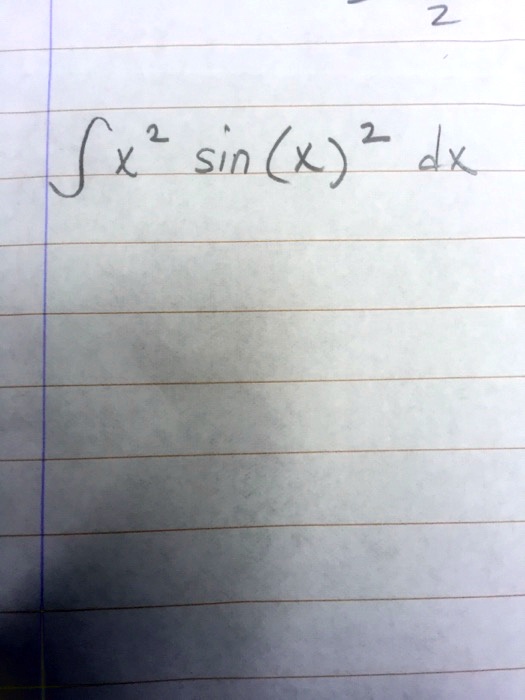 2
∫x² sin(x)² dx